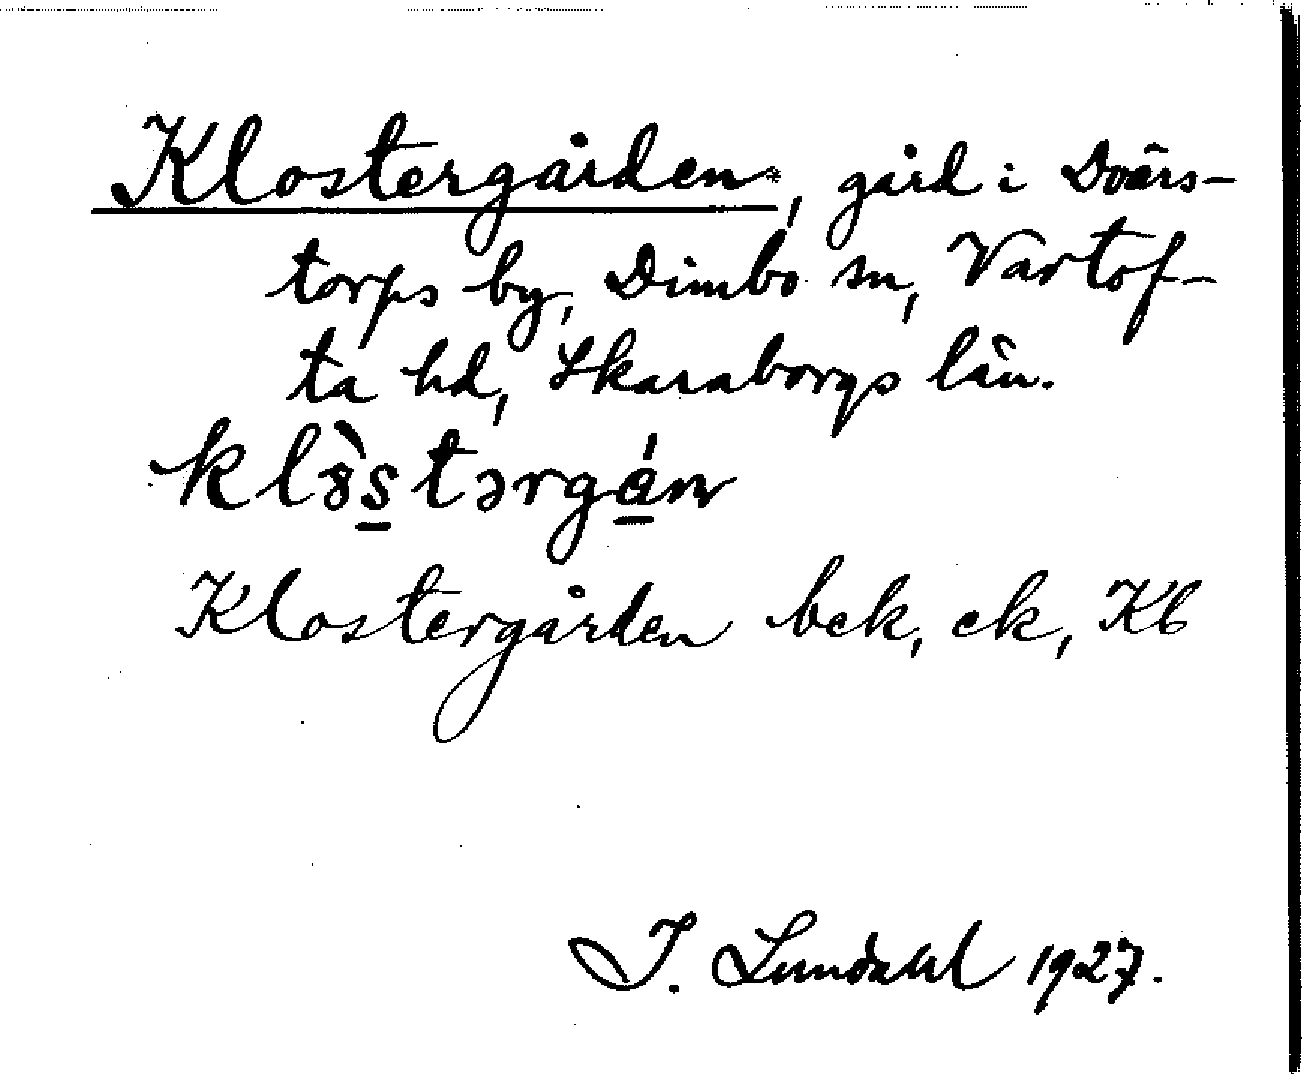 Klostergården, gård i Dvärs-
torps by, Dimbo sn, Vartof-
ta hd, Skaraborgs län.
Klostergården bek, ek, Kb
I. Lundahl 1927.